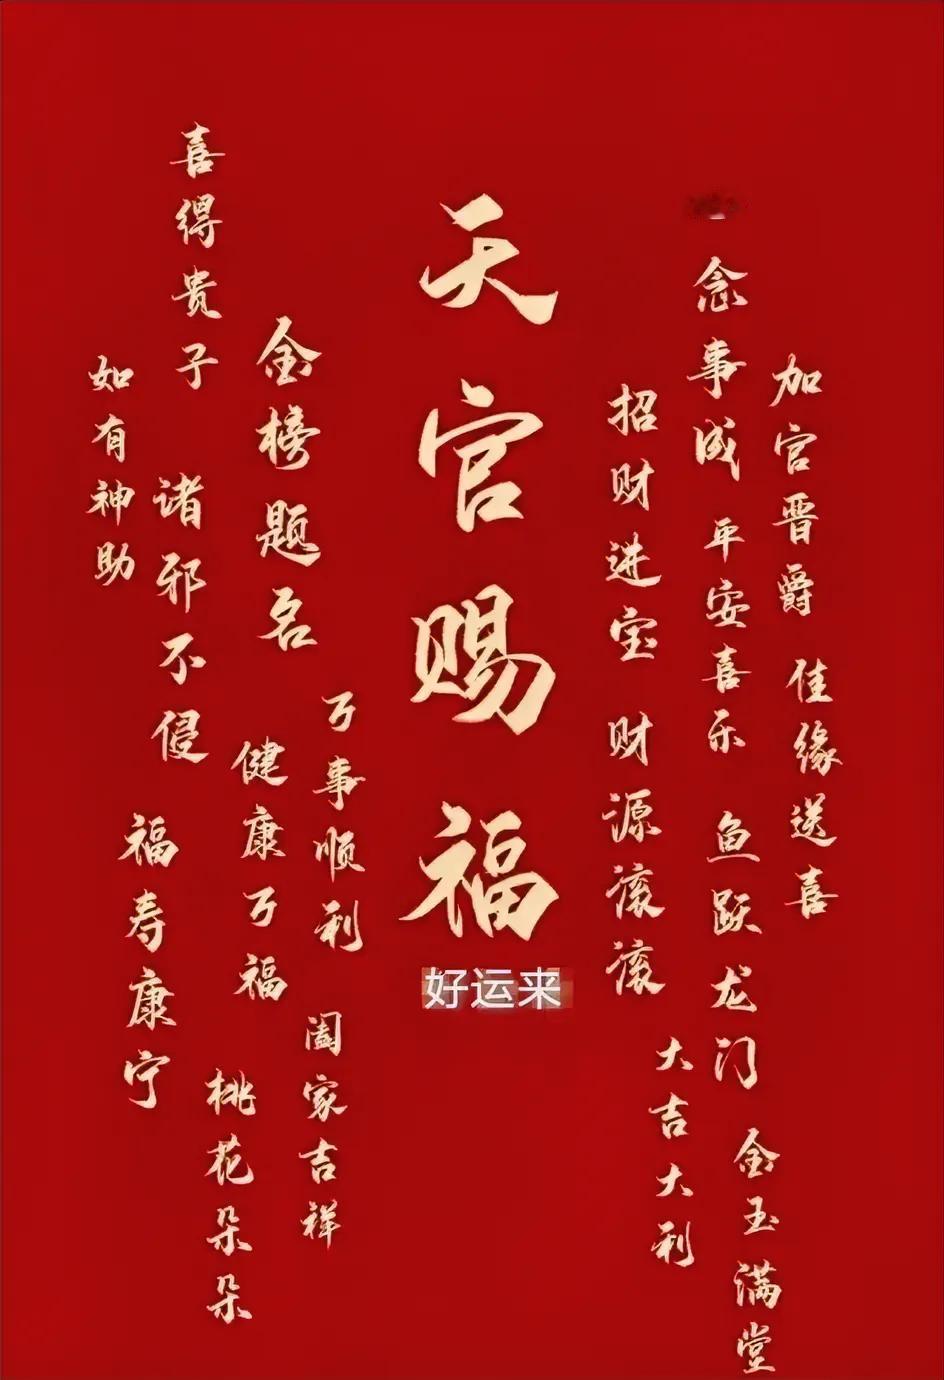 加官晋爵
佳缘送喜
念事成
平安喜乐
鱼跃龙门
金玉满堂
招财进宝
财源滚滚
大吉大利
天官赐福
好运来
万事顺利
阖家吉祥
金榜题名
健康万福
桃花朵朵
喜得贵子
诸邪不侵
福寿康宁
如有神助